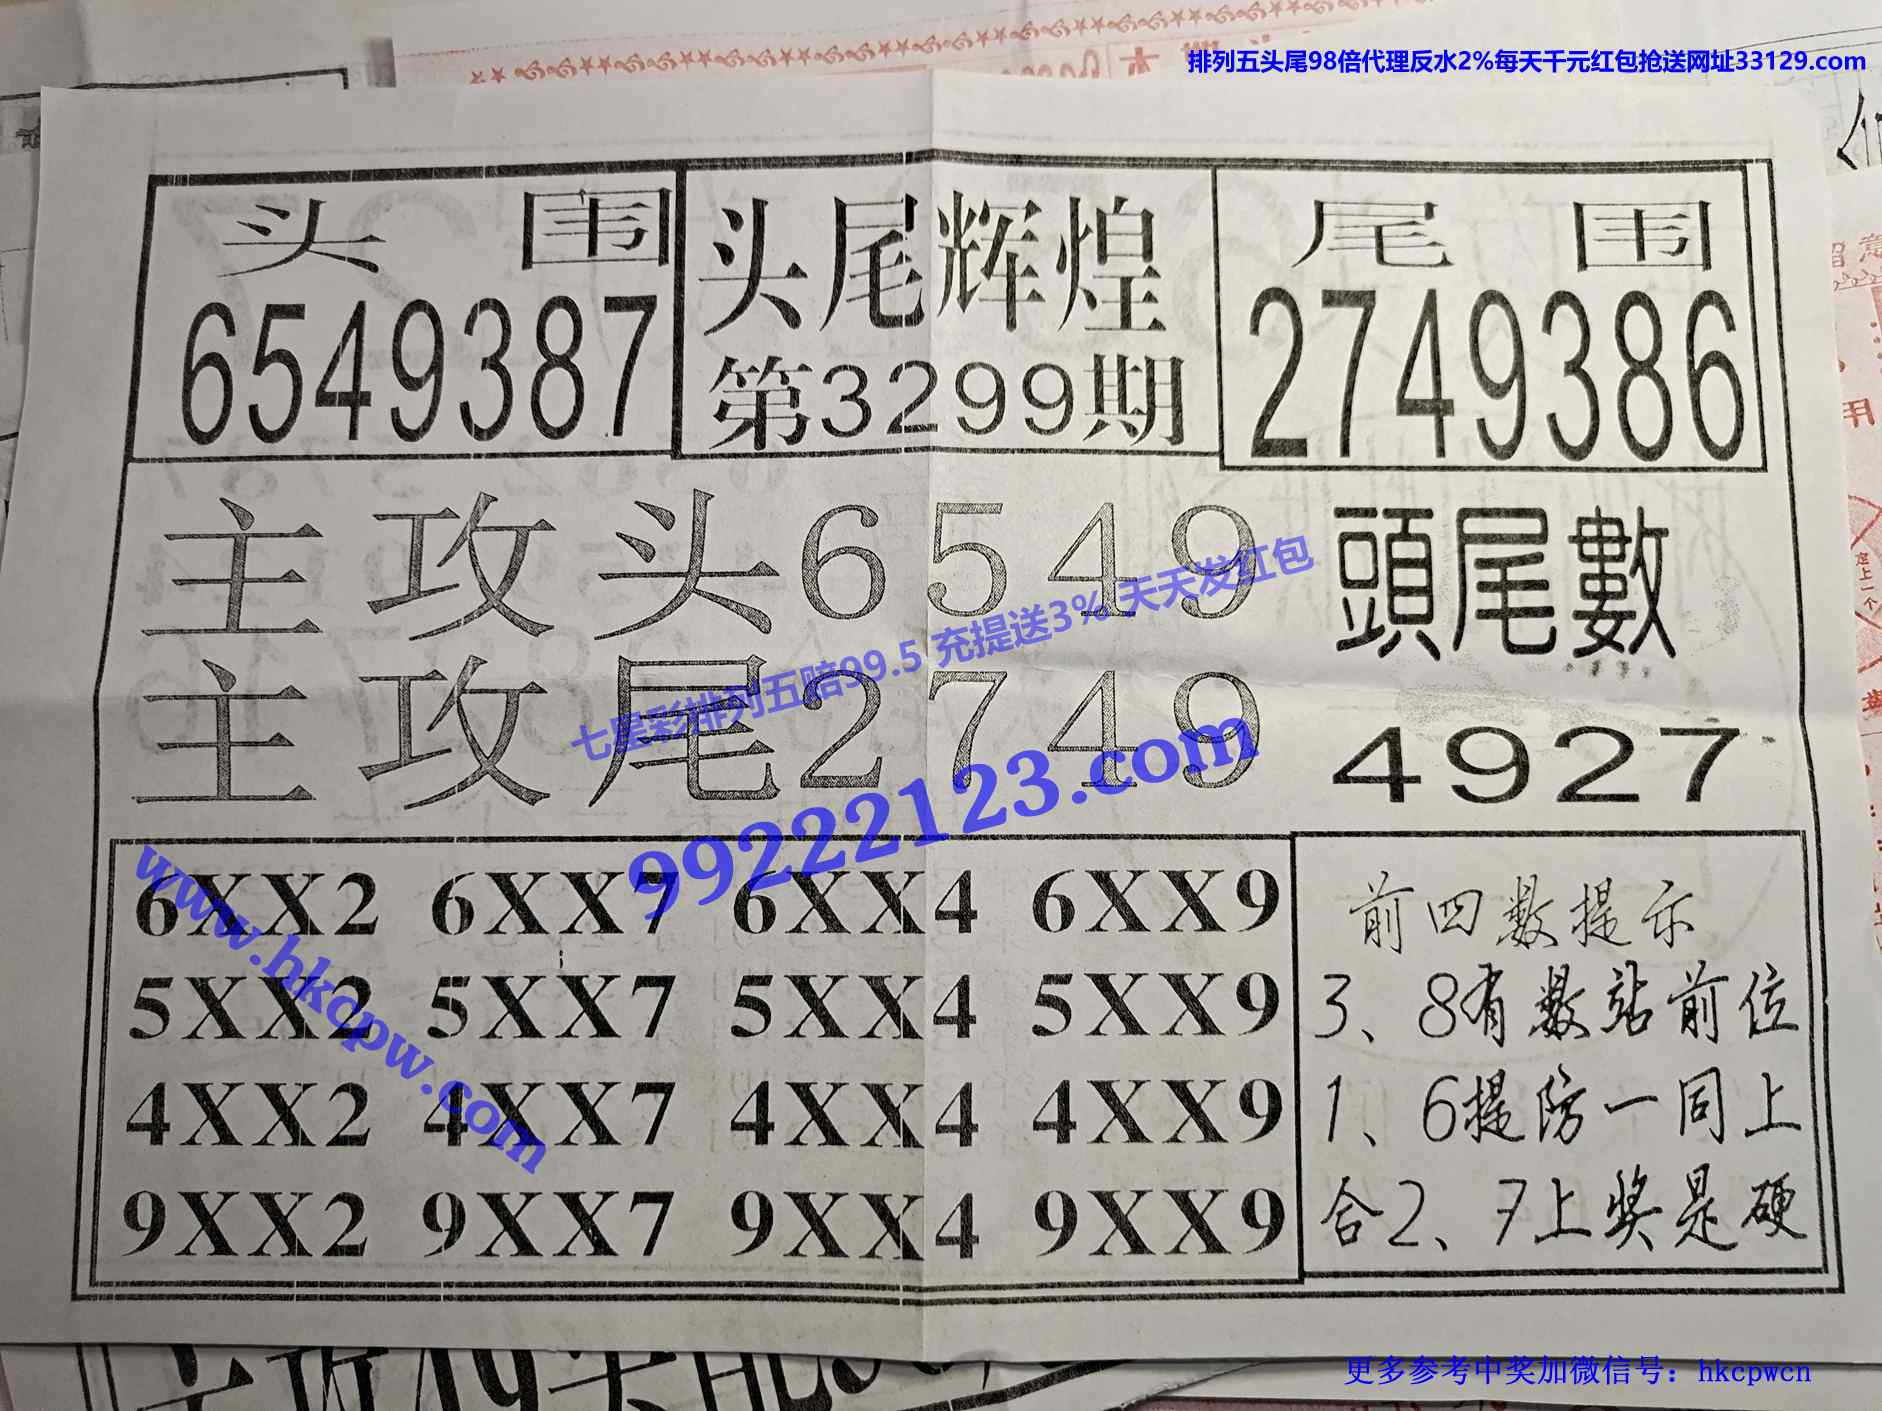 排列五头尾98倍代理反水2%每天千元红包抢送网址33129.com
头 围
6549387
头尾辉煌
第3299期
尾 围
2749386
主攻头6549
主攻尾2749
頭尾數
4927
七星彩排列五赔99.5 充提送3% 天天发红包
99222123.com
www.hkcpw.com
6XX2 6XX7 6XX4 6XX9
5XX2 5XX7 5XX4 5XX9
4XX2 4XX7 4XX4 4XX9
9XX2 9XX7 9XX4 9XX9
前四数提示
3、8有数站前位
1、6提防一同上
合2、7上奖是硬
更多参考中奖加微信号：hkcpwcn